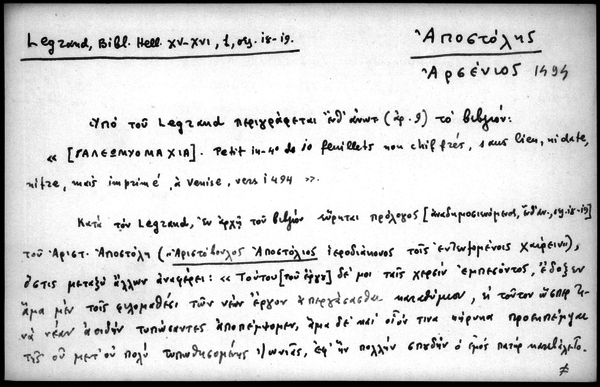 Legrand, Bibl. Hell. XV-XVI, 1, σσ. 18-19.
Ἀποστόλης
Ἀρσένιος 1494
Ὑπὸ τοῦ Legrand περιγράφεται ἔνθ' ἀνωτ. (ἀρ. 9) τὸ βιβλίον:
« [ΓΑΛΕΩΜΥΟΜΑΧΙΑ]. Petit in-4º de 10 feuillets non chiffrés, sans lieu, ni date,
ni titre, mais imprimé, à Venise, vers 1494 ».
Κατὰ τὸν Legrand, ἐν ἀρχῇ τοῦ βιβλίου εὕρηται πρόλογος [ἀναδημοσιευόμενος, ἔνθ' ἀν., σσ. 18-19]
τοῦ Ἀριστ. Ἀποστόλη (« Ἀριστόβουλος Ἀποστόλιος ἱεροδιάκονος τοῖς ἐντευξομένοις χαίρειν»),
ὅστις μεταξὺ ἄλλων ἀναφέρει: « Τούτου [τοῦ ἔργου] δέ μοι ταῖς χερσὶν ἐμπεσόντος, ἔδοξεν
ἅμα μὲν τοῖς φιλομαθέσι τῶν νέων ἔργον ἀπεργάσασθαι καταθύμιον, εἰ τοῦτον ὥσπερ
νὰ νέαν ἀοιδὴν τυπώσαντες ἀποπέμψομεν, ἅμα δὲ καὶ οἷόν τινα κήρυκα προεκπέμψαι
τῆς οὐ μετ' οὐ πολὺ τυπωθησομένης Ἰωνιᾶς, ἐφ' ἣν πολλὴν σπουδὴν ὁ ἐμὸς πατὴρ κατεβάλετο.